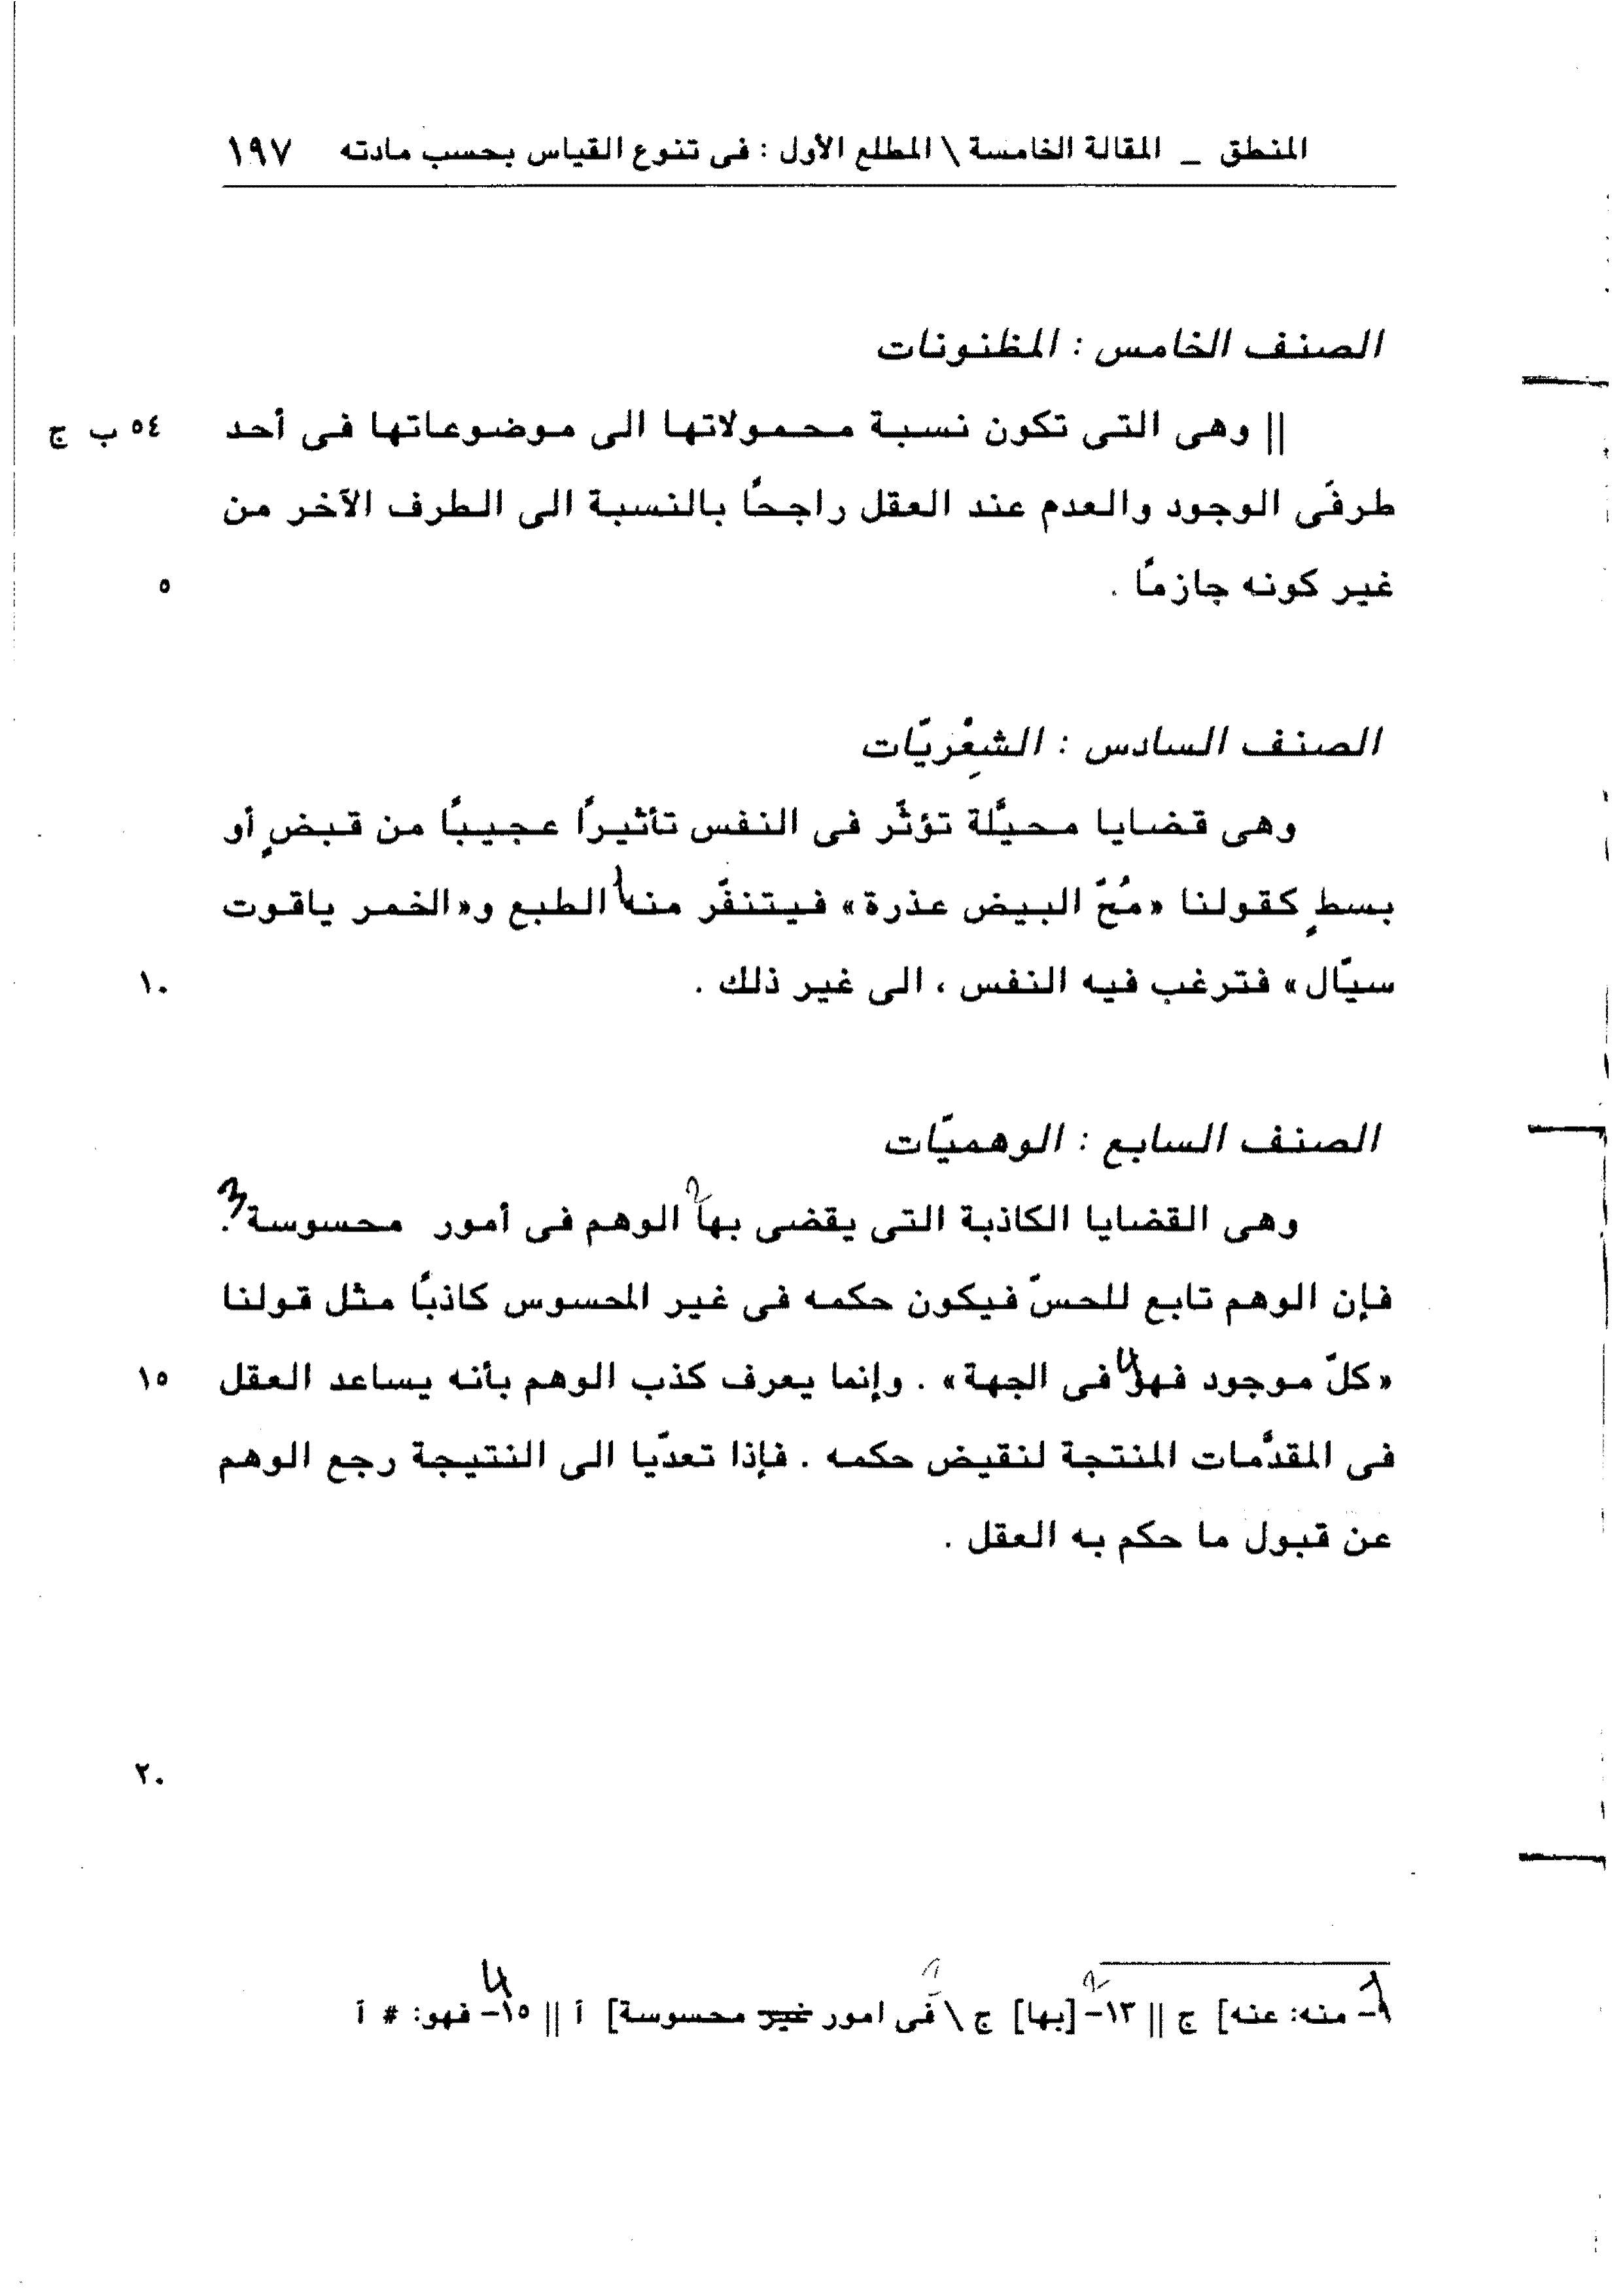 المنطق _ المقالة الخامسة \ المطلع الأول : فى تنوع القياس بحسب مادته ١٩٧
الصنف الخامس : المظنونات
|| وهى التى تكون نسبة محمولاتها الى موضوعاتها فى أحد ٥٤ ب ج
طرفَى الوجود والعدم عند العقل راجحاً بالنسبة الى الطرف الآخر من
غير كونه جازماً . ٥
الصنف السادس : الشِعْريّات
وهى قضايا محيَّلة تؤثّر فى النفس تأثيراً عجيباً من قبضٍ أو
بسطٍ كقولنا «مُحّ البيض عذرة» فيتنفّر منه 1 الطبع و«الخمر ياقوت
سيّال» فترغب فيه النفس ، الى غير ذلك . ١٠
الصنف السابع : الوهميّات
وهى القضايا الكاذبة التى يقضى بها 2 الوهم فى أمور محسوسة 3 .
فإن الوهم تابع للحسّ فيكون حكمه فى غير المحسوس كاذباً مثل قولنا
«كلّ موجود فهو 4 فى الجهة» . وإنما يعرف كذب الوهم بأنه يساعد العقل ١٥
فى المقدَّمات المنتجة لنقيض حكمه . فإذا تعدّيا الى النتيجة رجع الوهم
عن قبول ما حكم به العقل .
٢٠
٩- منه: عنه] ج || ١٣- [بها] ج \ فى امور غير محسوسة] أ || ١٥- فهو: # أ